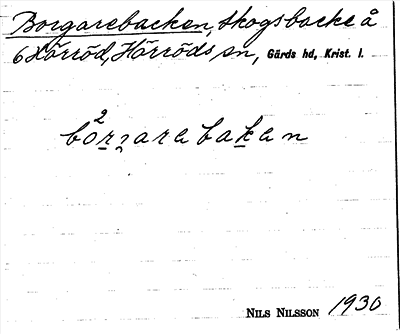 Borgarebacken, skogsbacke å
6 Hörröd, Hörröds sn, Gärds hd, Krist. l.
bo²rgarebaken
NILS NILSSON 1930